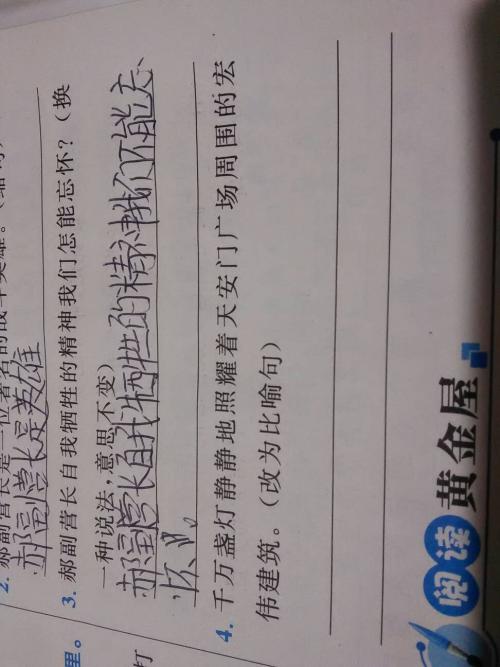 2. 郝副营长是一位著名的战斗英雄。(缩句
郝副营长是英雄
3. 郝副营长自我牺牲的精神我们怎能忘怀?(换
一种说法,意思不变)
郝副营长自我牺牲的精神我们不能忘
怀。
4. 千万盏灯静静地照耀着天安门广场周围的宏
伟建筑。(改为比喻句)
阅读黄金屋
里。
打